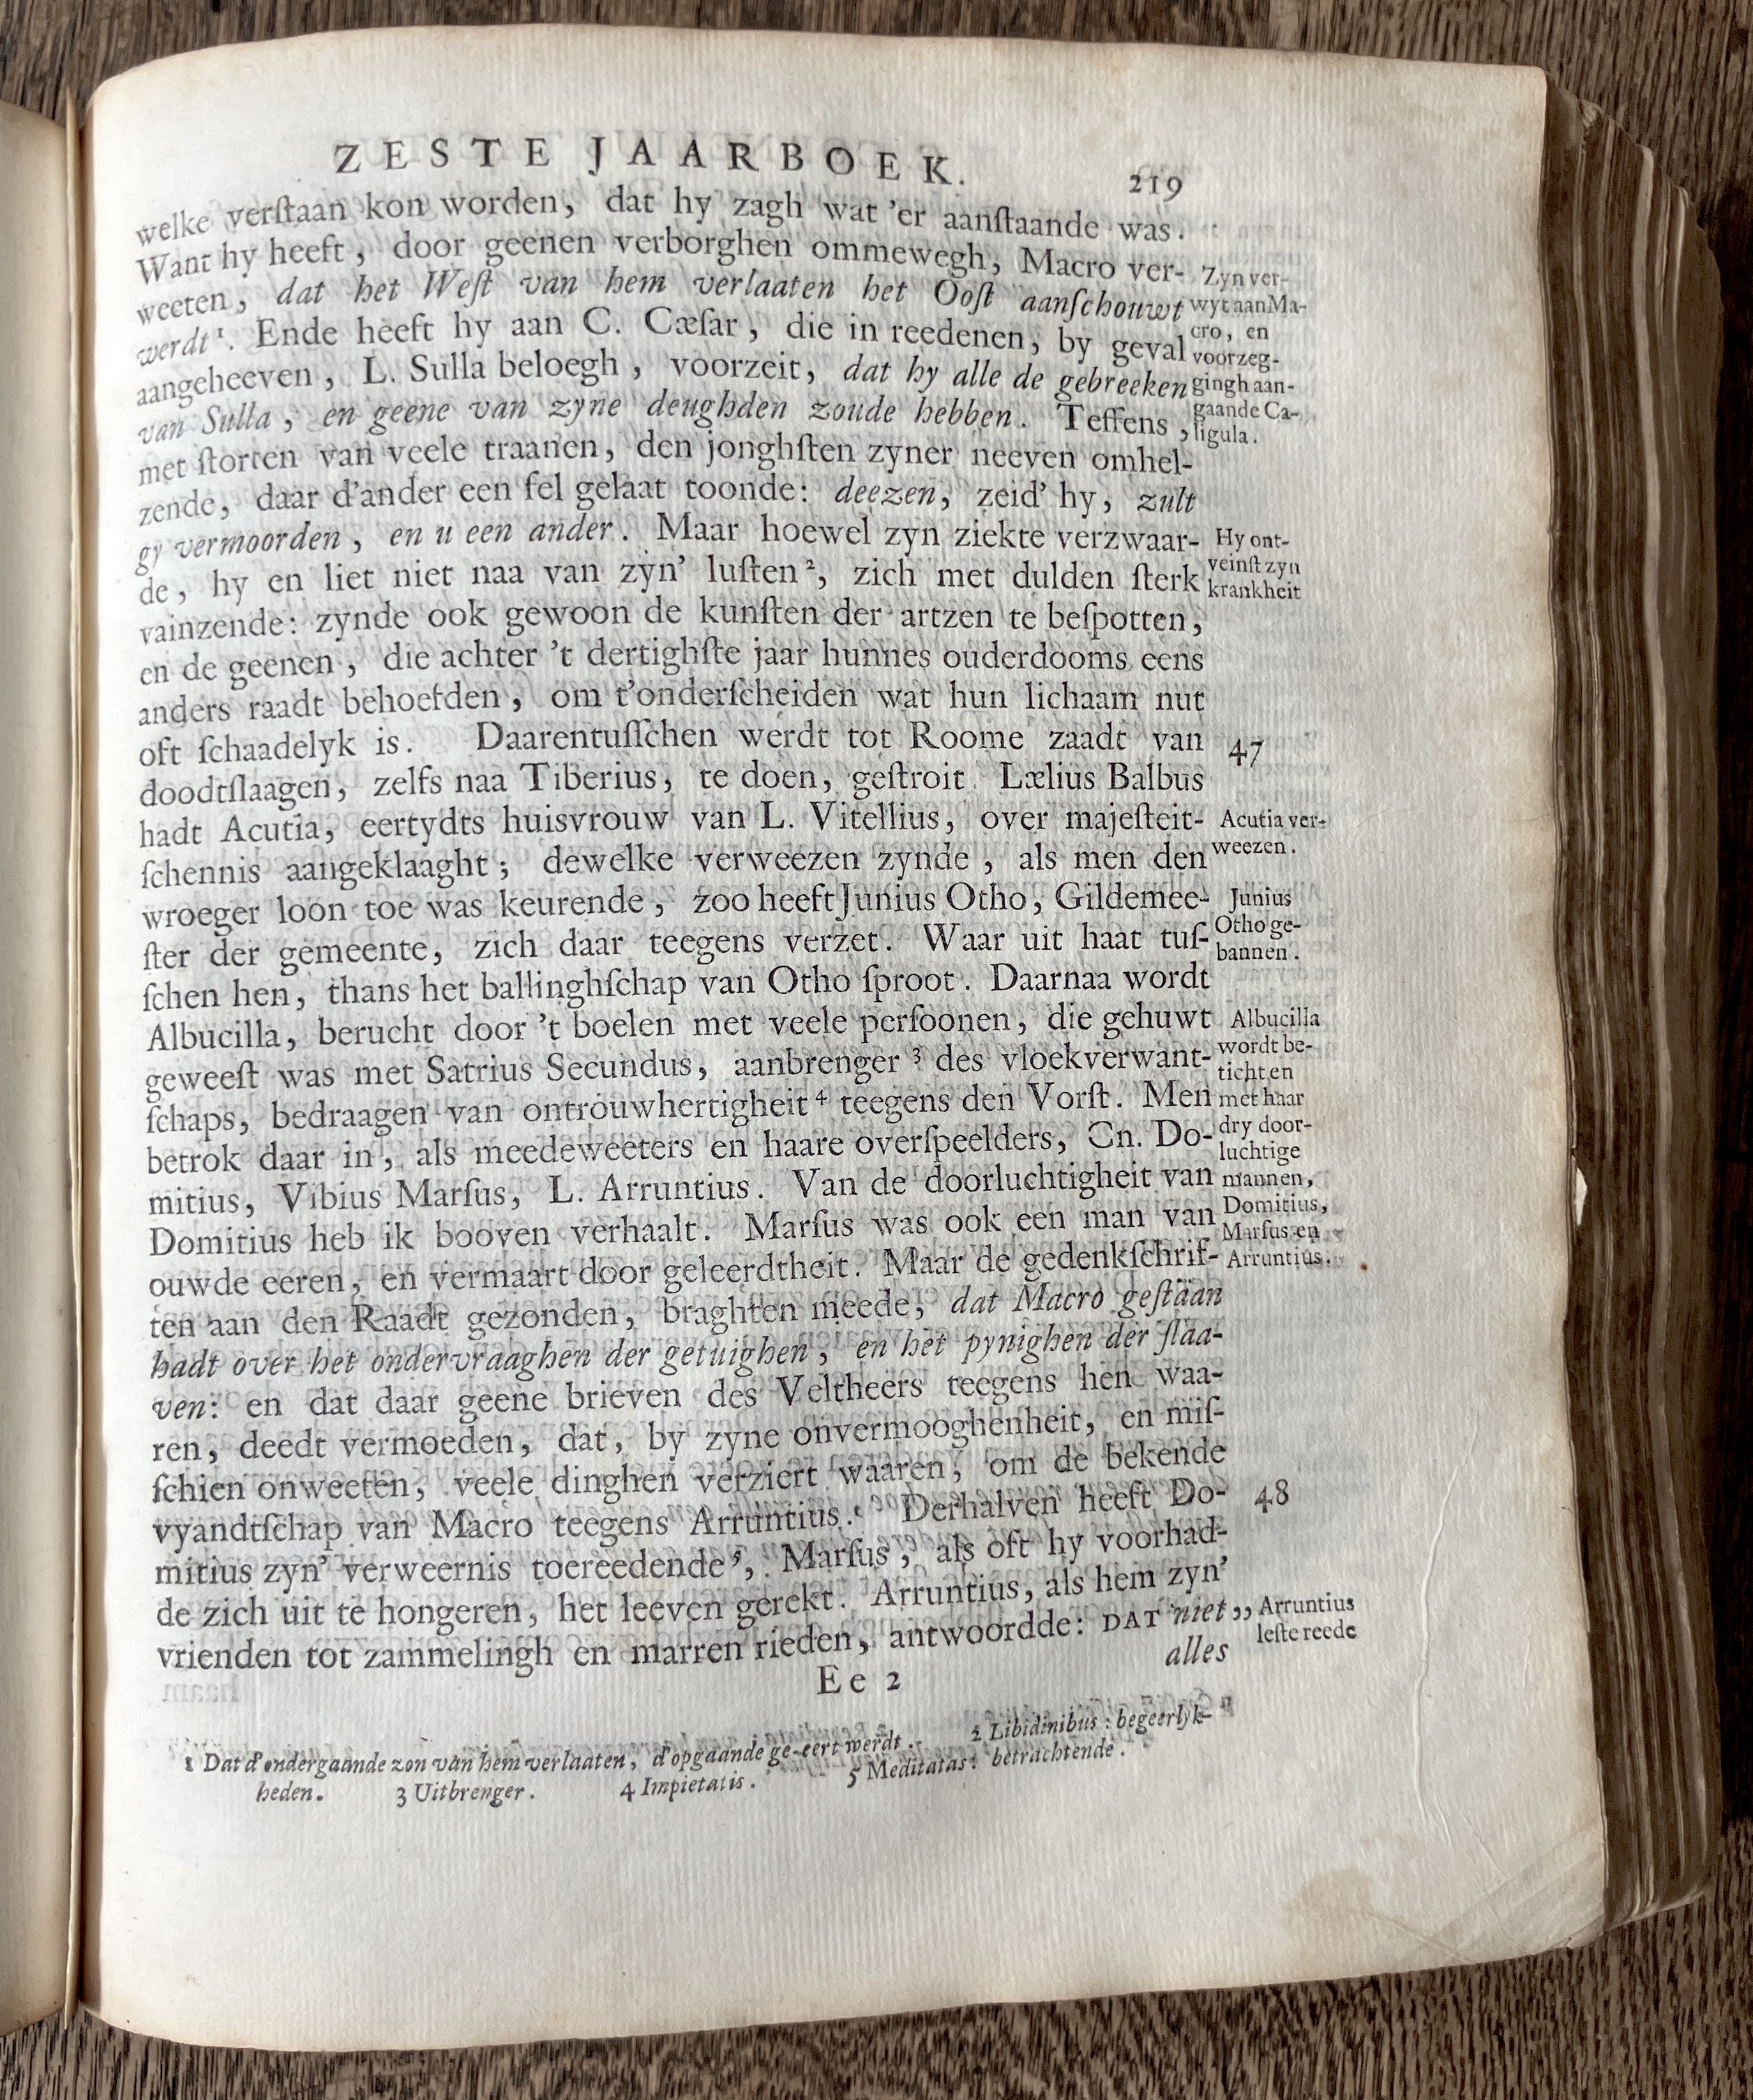 ZESTE JAARBOEK.
219
welke verſtaan kon worden, dat hy zagh wat 'er aanſtaande was.
Want hy heeft, door geenen verborghen ommewegh, Macro ver-
weeten, dat het Weſt van hem verlaaten het Ooſt aanſchouwt
werdt¹. Ende heeft hy aan C. Cæſar, die in reedenen, by geval
aangeheeven, L. Sulla beloegh, voorzeit, dat hy alle de gebreeken
van Sulla, en geene van zyne deughden zoude hebben. Teffens,
met ſtorten van veele traanen, den jonghſten zyner neeven omhel-
zende, daar d'ander een fel gelaat toonde: deezen, zeid' hy, zult
gy vermoorden, en u een ander. Maar hoewel zyn ziekte verzwaar-
de, hy en liet niet naa van zyn' luſten², zich met dulden ſterk
vainzende: zynde ook gewoon de kunſten der artzen te beſpotten,
en de geenen, die achter 't dertighſte jaar hunnes ouderdooms eens
anders raadt behoefden, om t'onderſcheiden wat hun lichaam nut
oft ſchaadelyk is. Daarentuſſchen werdt tot Roome zaadt van
doodtſlaagen, zelfs naa Tiberius, te doen, geſtroit. Lælius Balbus
hadt Acutia, eertydts huisvrouw van L. Vitellius, over majeſteit-
ſchennis aangeklaaght; dewelke verweezen zynde, als men den
wroeger loon toe was keurende, zoo heeft Junius Otho, Gildemee-
ſter der gemeente, zich daar teegens verzet. Waar uit haat tuſ-
ſchen hen, thans het ballinghſchap van Otho ſproot. Daarnaa wordt
Albucilla, berucht door 't boelen met veele perſoonen, die gehuwt
geweeſt was met Satrius Secundus, aanbrenger ³ des vloekverwant-
ſchaps, bedraagen van ontrouwhertigheit⁴ teegens den Vorſt. Men
betrok daar in, als meedeweeters en haare overſpeelders, Cn. Do-
mitius, Vibius Marſus, L. Arruntius. Van de doorluchtigheit van
Domitius heb ik booven verhaalt. Marſus was ook een man van
ouwde eeren, en vermaart door geleerdtheit. Maar de gedenkſchrif-
ten aan den Raadt gezonden, braghten meede, dat Macro geſtaan
hadt over het ondervraaghen der getuighen, en het pynighen der ſlaa-
ven: en dat daar geene brieven des Veltheers teegens hen waa-
ren, deedt vermoeden, dat, by zyne onvermooghenheit, en miſ-
ſchien onweeten, veele dinghen verziert waaren, om de bekende
vyandtſchap van Macro teegens Arruntius. Derhalven heeft Do-
mitius zyn' verweernis toereedende⁵, Marſus, als oft hy voorhad-
de zich uit te hongeren, het leeven gerekt. Arruntius, als hem zyn'
vrienden tot zammelingh en marren rieden, antwoordde: DAT niet „
alles
Ee 2
Zyn ver-
wyt aan Ma-
cro, en
voorzeg-
gingh aan-
gaande Ca-
ligula.
Hy ont-
veinſt zyn
krankheit
47
Acutia ver-
weezen.
Junius
Otho ge-
bannen.
Albucilla
wordt be-
ticht en
met haar
dry door-
luchtige
mannen,
Domitius,
Marſus en
Arruntius.
48
Arruntius
leſte reede
1 Dat d'ondergaande zon van hem verlaaten, d'opgaande ge-eert werdt. 2 Libidinibus: begeerlyk-
heden. 3 Uitbrenger. 4 Impietatis. 5 Meditatas: betrachtende.